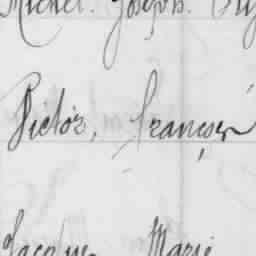 Michel. Joseph.
Victor, François
Jacques Marie